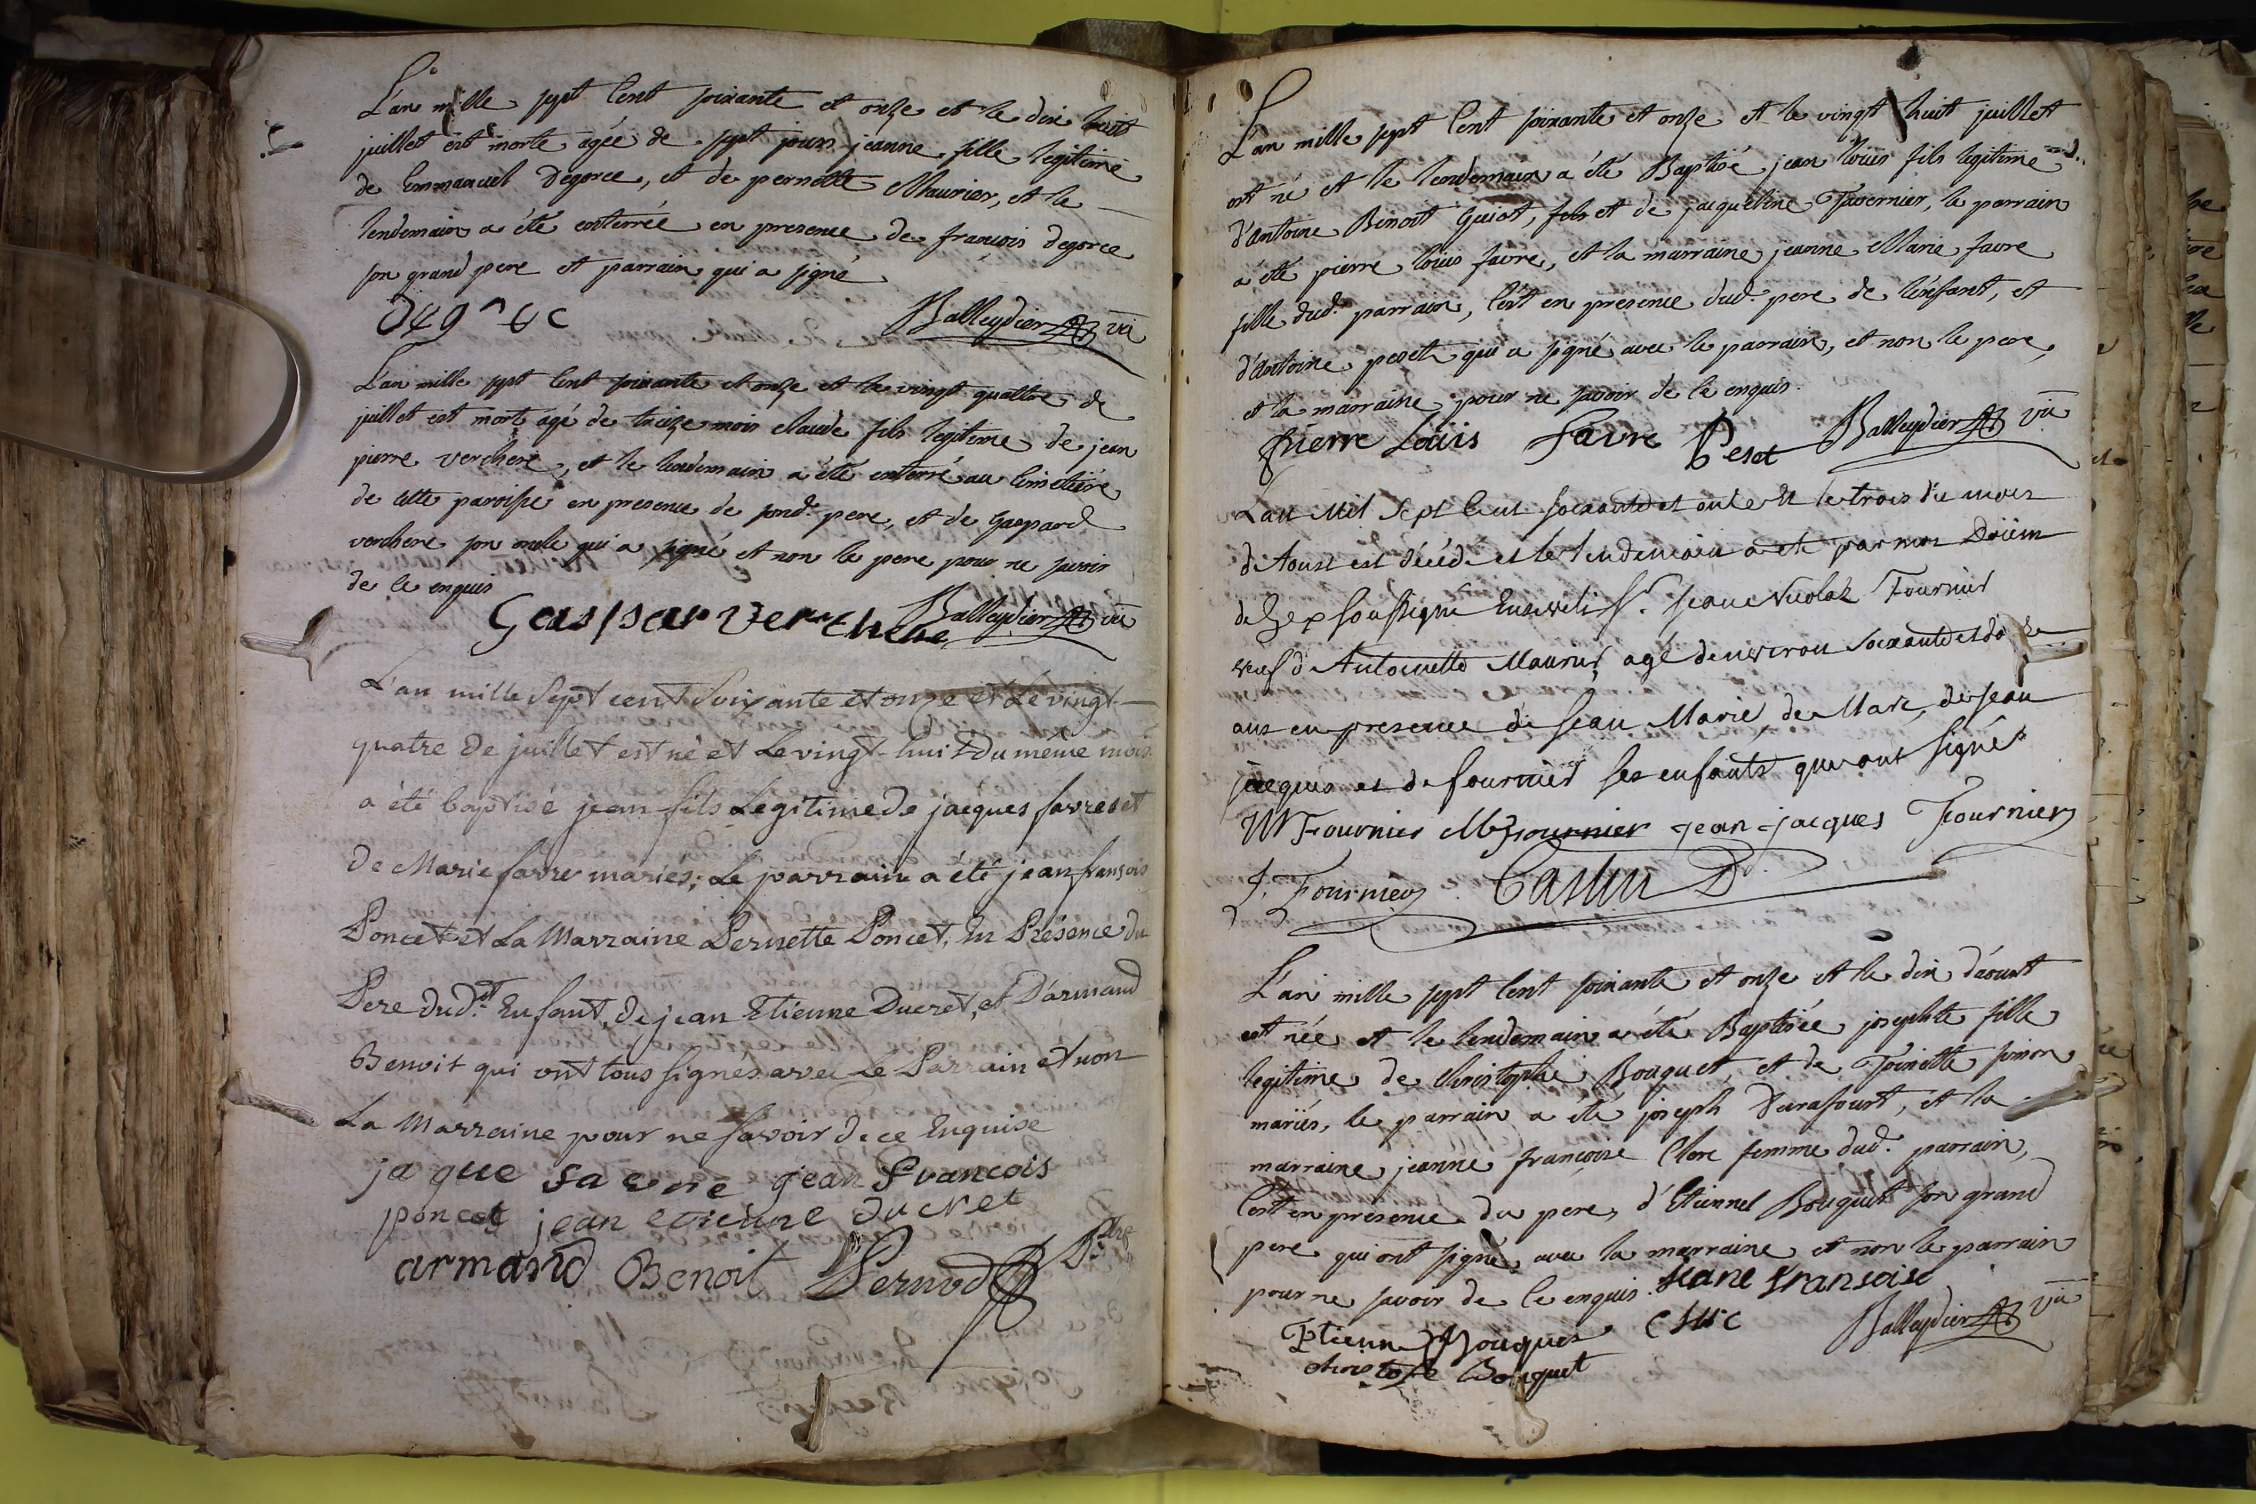 L'an mille sept cent soixante et onze et le dix huit
juillet est morte agée de sept jours jeanne fille legitime
de Emmanuel Degorce, et de pernette Maurier, et le
lendemain a été enterrée en presence de françois degorce
son grand pere et parrain qui a signé
Balleydier vic
L'an mille sept cent soixante et onze et le vingt quattre de
juillet est mort agé de treize mois claude fils legitime de jean
pierre verchere, et le lendemain a été enterré au cimetière
de cette paroisse en presence de sond. pere, et de Gaspard
verchere son oncle qui a signé et non le pere pour ne savoir
de ce enquis
Gaspar Verchere Balleydier vic
L'an mille Sept cent Soixante et onze et Le vingt
quatre de juillet est né et Le vingt-huit du même mois
a été baptisé jean fils Legitime de jacques favre et
de Marie favre mariés; Le parrain a été jean françois
Poncet et La Marraine Pernette Poncet, En Présence du
Pere dud.t Enfant, de jean Etienne Ducret, et D'armand
Benoit qui ont tous signes avec Le Parrain et non
La Marraine pour ne savoir de ce Enquise
jaque favre jean francois
poncet jean etienne ducret
armand Benoit Pernod Ptre
L'an mille sept cent soixante et onze et le vingt huit juillet
est né et le lendemain a été Baptisé jean louis fils legitime
d'Antoine Benoit Guiot, fils et de jacqueline Tavernier, le parrain
a été pierre louis favre, et la marraine jeanne Marie favre
fille dud. parrain, c'est en presence dud. pere de l'enfant, et
d'Antoine peset qui a signé avec le parrain, et non le pere,
et la marraine pour ne savoir de ce enquis
pierre Louis favre Peset Balleydier vic
L'an Mil Sept Cent soixante et onze et le trois du mois
d'Aoust est décédé et le lendemain a eté par moi Doïen
de Gex soussigné Enseveli Sr. Jean Nicolas Fournier
veuf d'Antoinette Maurier, agé d'environ soixante et douze
ans en presence de Jean Marie, de Marc, de Jean
jacques et de fournier ses enfants qui ont signés
Fournier M Fournier jean-jacques Fournier
J. Fournier Castin D.
L'an mille sept cent soixante et onze et le dix d'aoust
est née et le lendemain a été Baptisée josephte fille
legitime de christophe Bouquet, et de Toinette simon
mariés, le parrain a été joseph Durafourt, et la
marraine jeanne françoise Clerc femme dud. parrain,
c'est en presence du pere, d'Etiennel Bouquet son grand
pere qui ont signé, avec la marraine et non le parrain
pour ne savoir de ce enquis. Jeane Fransoise
Etienne Bouquet Clerc Balleydier vic
christofle Bouquet